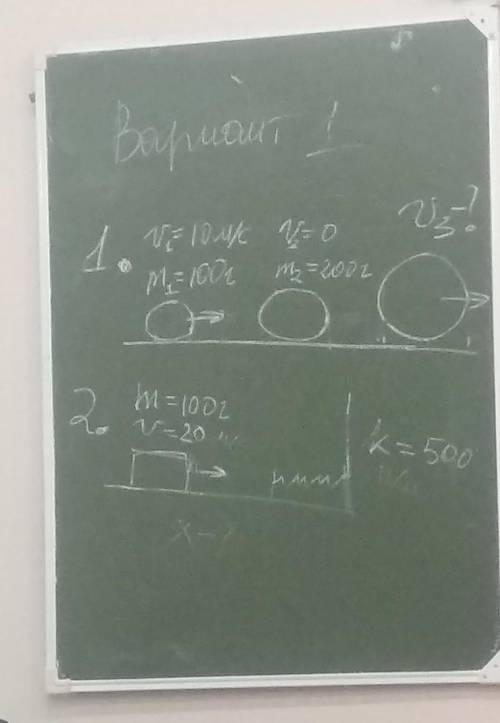 Вариант 1
1. v₁=10 м/с v₂=0 v₃-?
m₁=100г m₂=200г
2. m=100г
v=20
k=500
x-?